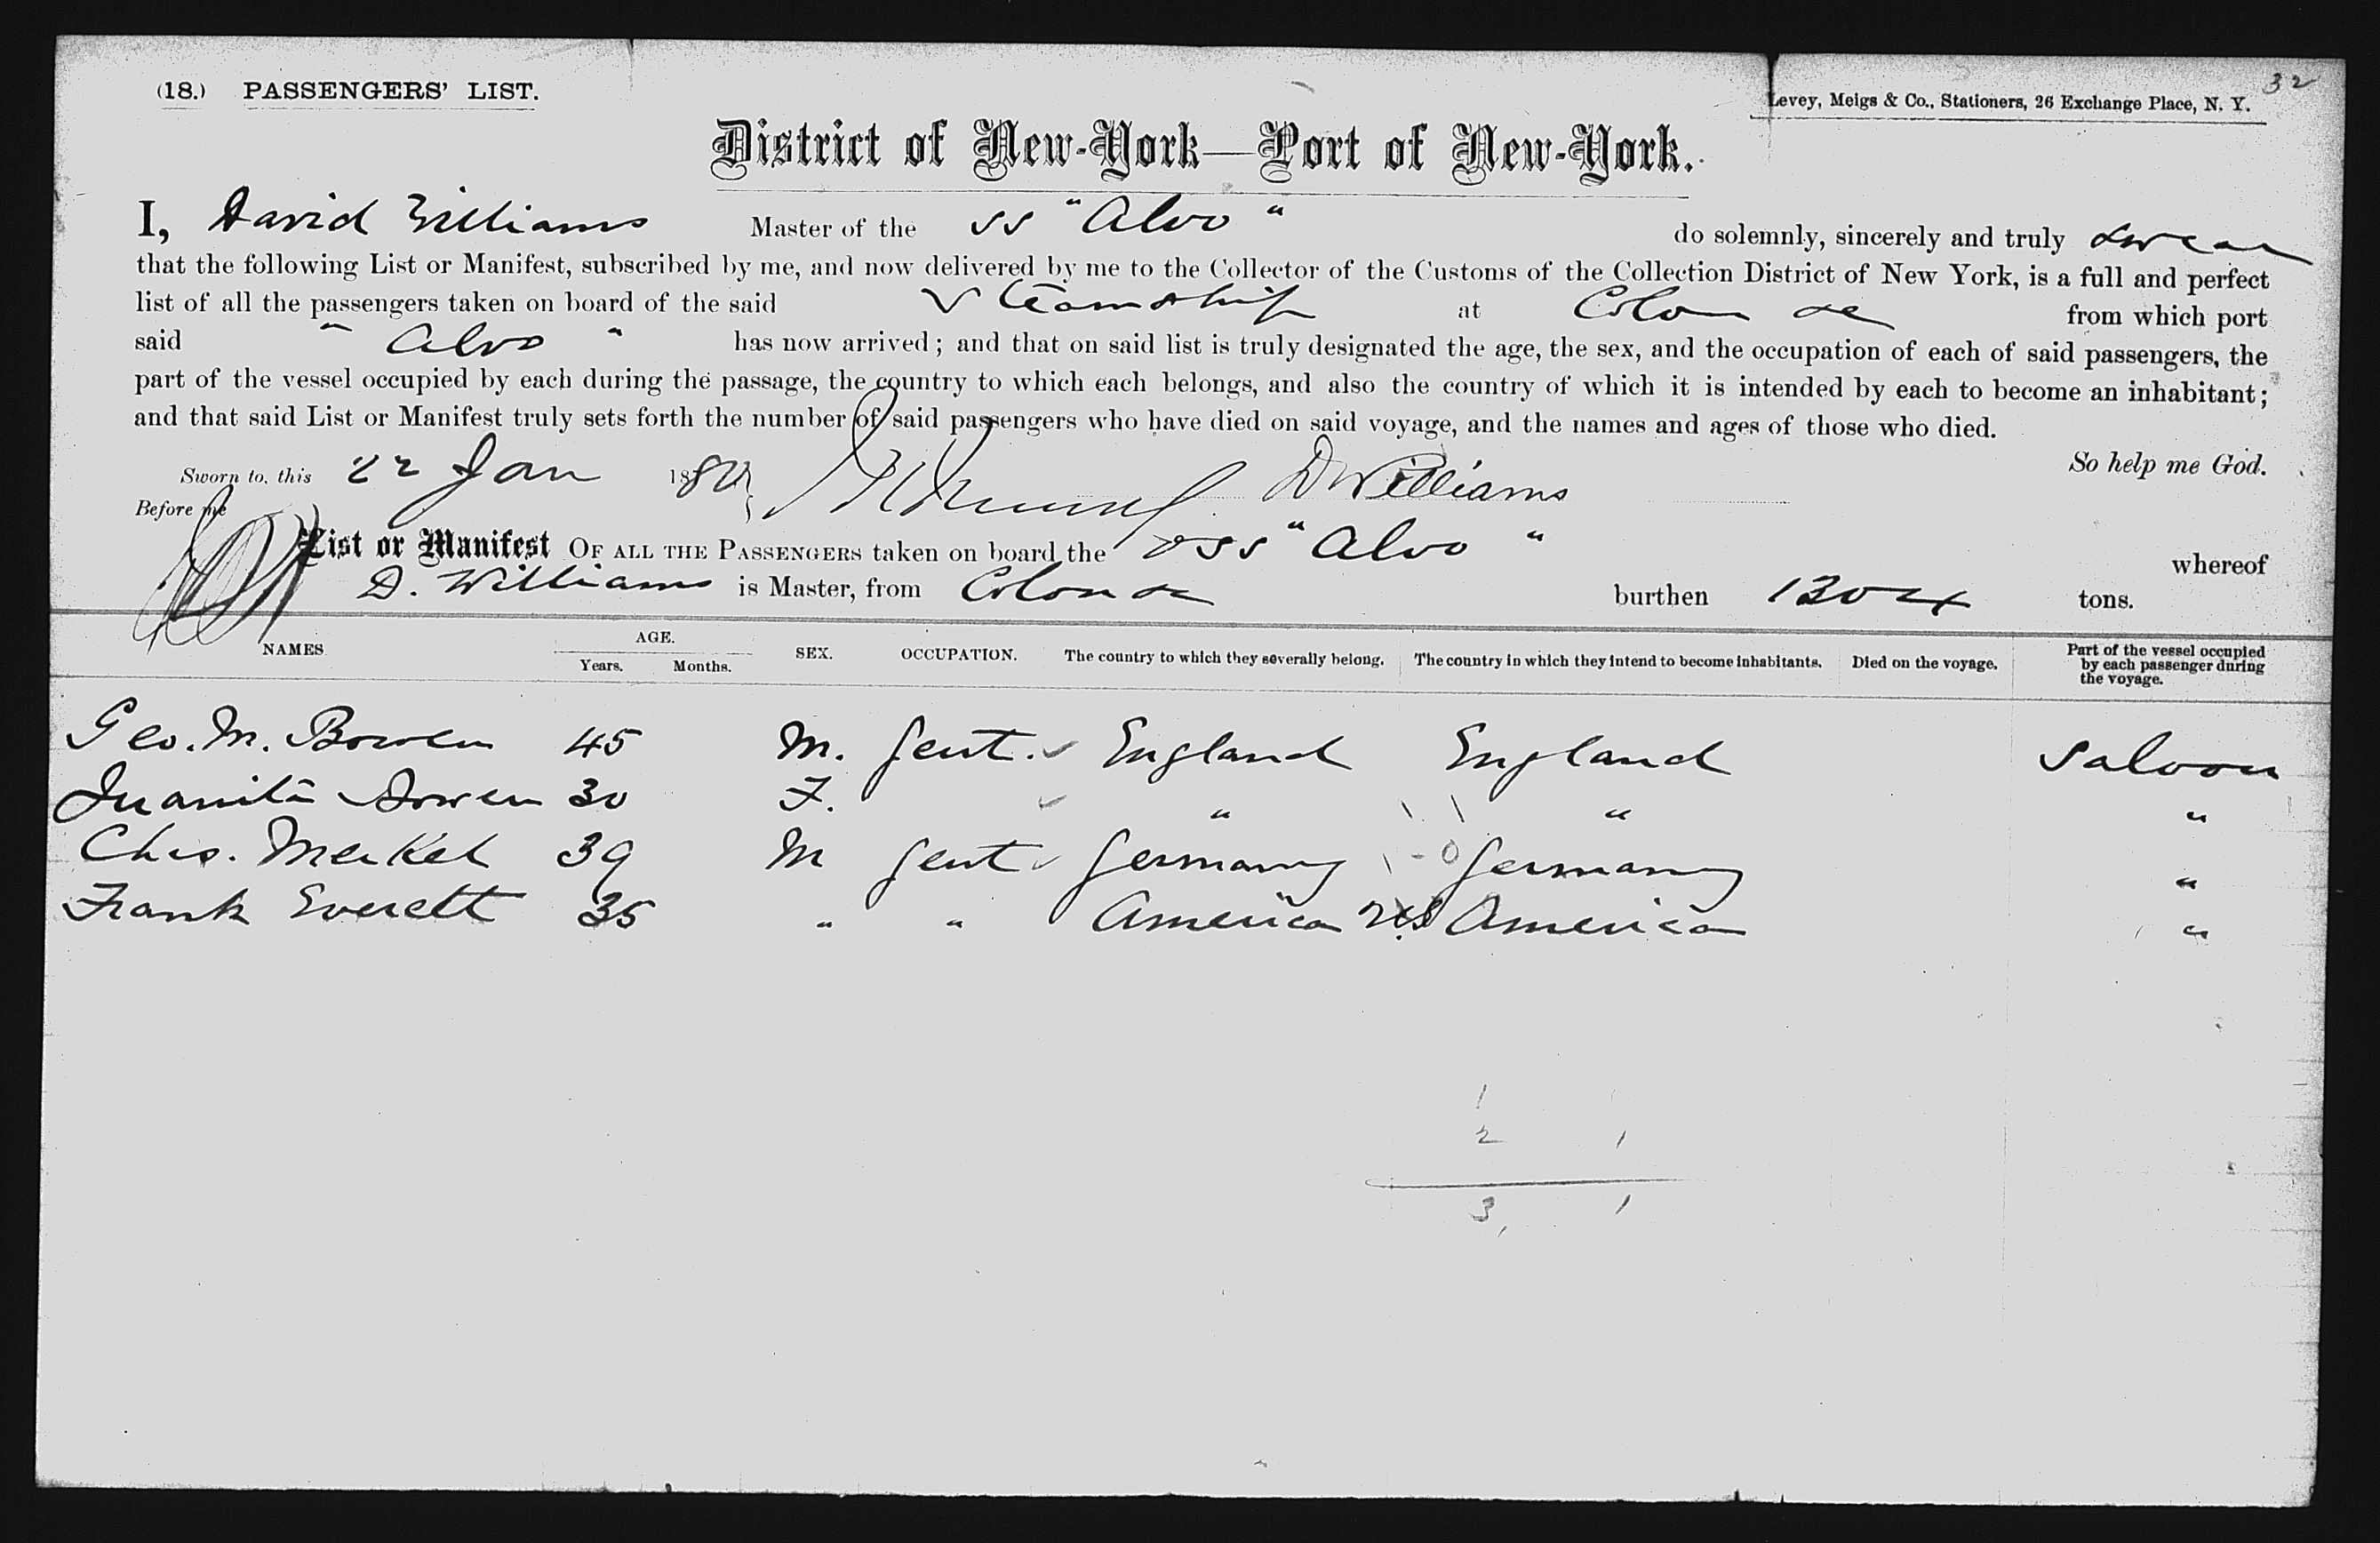 32
(18.) PASSENGERS' LIST.
Levey, Meigs & Co., Stationers, 26 Exchange Place, N. Y.
District of New-York—Port of New-York.
I, David Williams Master of the SS "Alvo" do solemnly, sincerely and truly swear
that the following List or Manifest, subscribed by me, and now delivered by me to the Collector of the Customs of the Collection District of New York, is a full and perfect
list of all the passengers taken on board of the said Steamship at Colon &c from which port
said "Alvo" has now arrived; and that on said list is truly designated the age, the sex, and the occupation of each of said passengers, the
part of the vessel occupied by each during the passage, the country to which each belongs, and also the country of which it is intended by each to become an inhabitant;
and that said List or Manifest truly sets forth the number of said passengers who have died on said voyage, and the names and ages of those who died.
So help me God.
Sworn to, this 22 Jan 1880 D Williams
Before me
List or Manifest OF ALL THE PASSENGERS taken on board the SS "Alvo" whereof
D. Williams is Master, from Colon &c burthen tons.
NAMES AGE. Years. Months. SEX. OCCUPATION. The country to which they severally belong. The country in which they intend to become inhabitants. Died on the voyage. Part of the vessel occupied by each passenger during the voyage.
Geo. M. Bowen 45 M. Gent. England England Saloon
Juanita Bowen 30 F. " " "
Chas. Merkel 39 M Gent Germany Germany "
Frank Everett 35 " " America US America "
1
2 1
3, 1